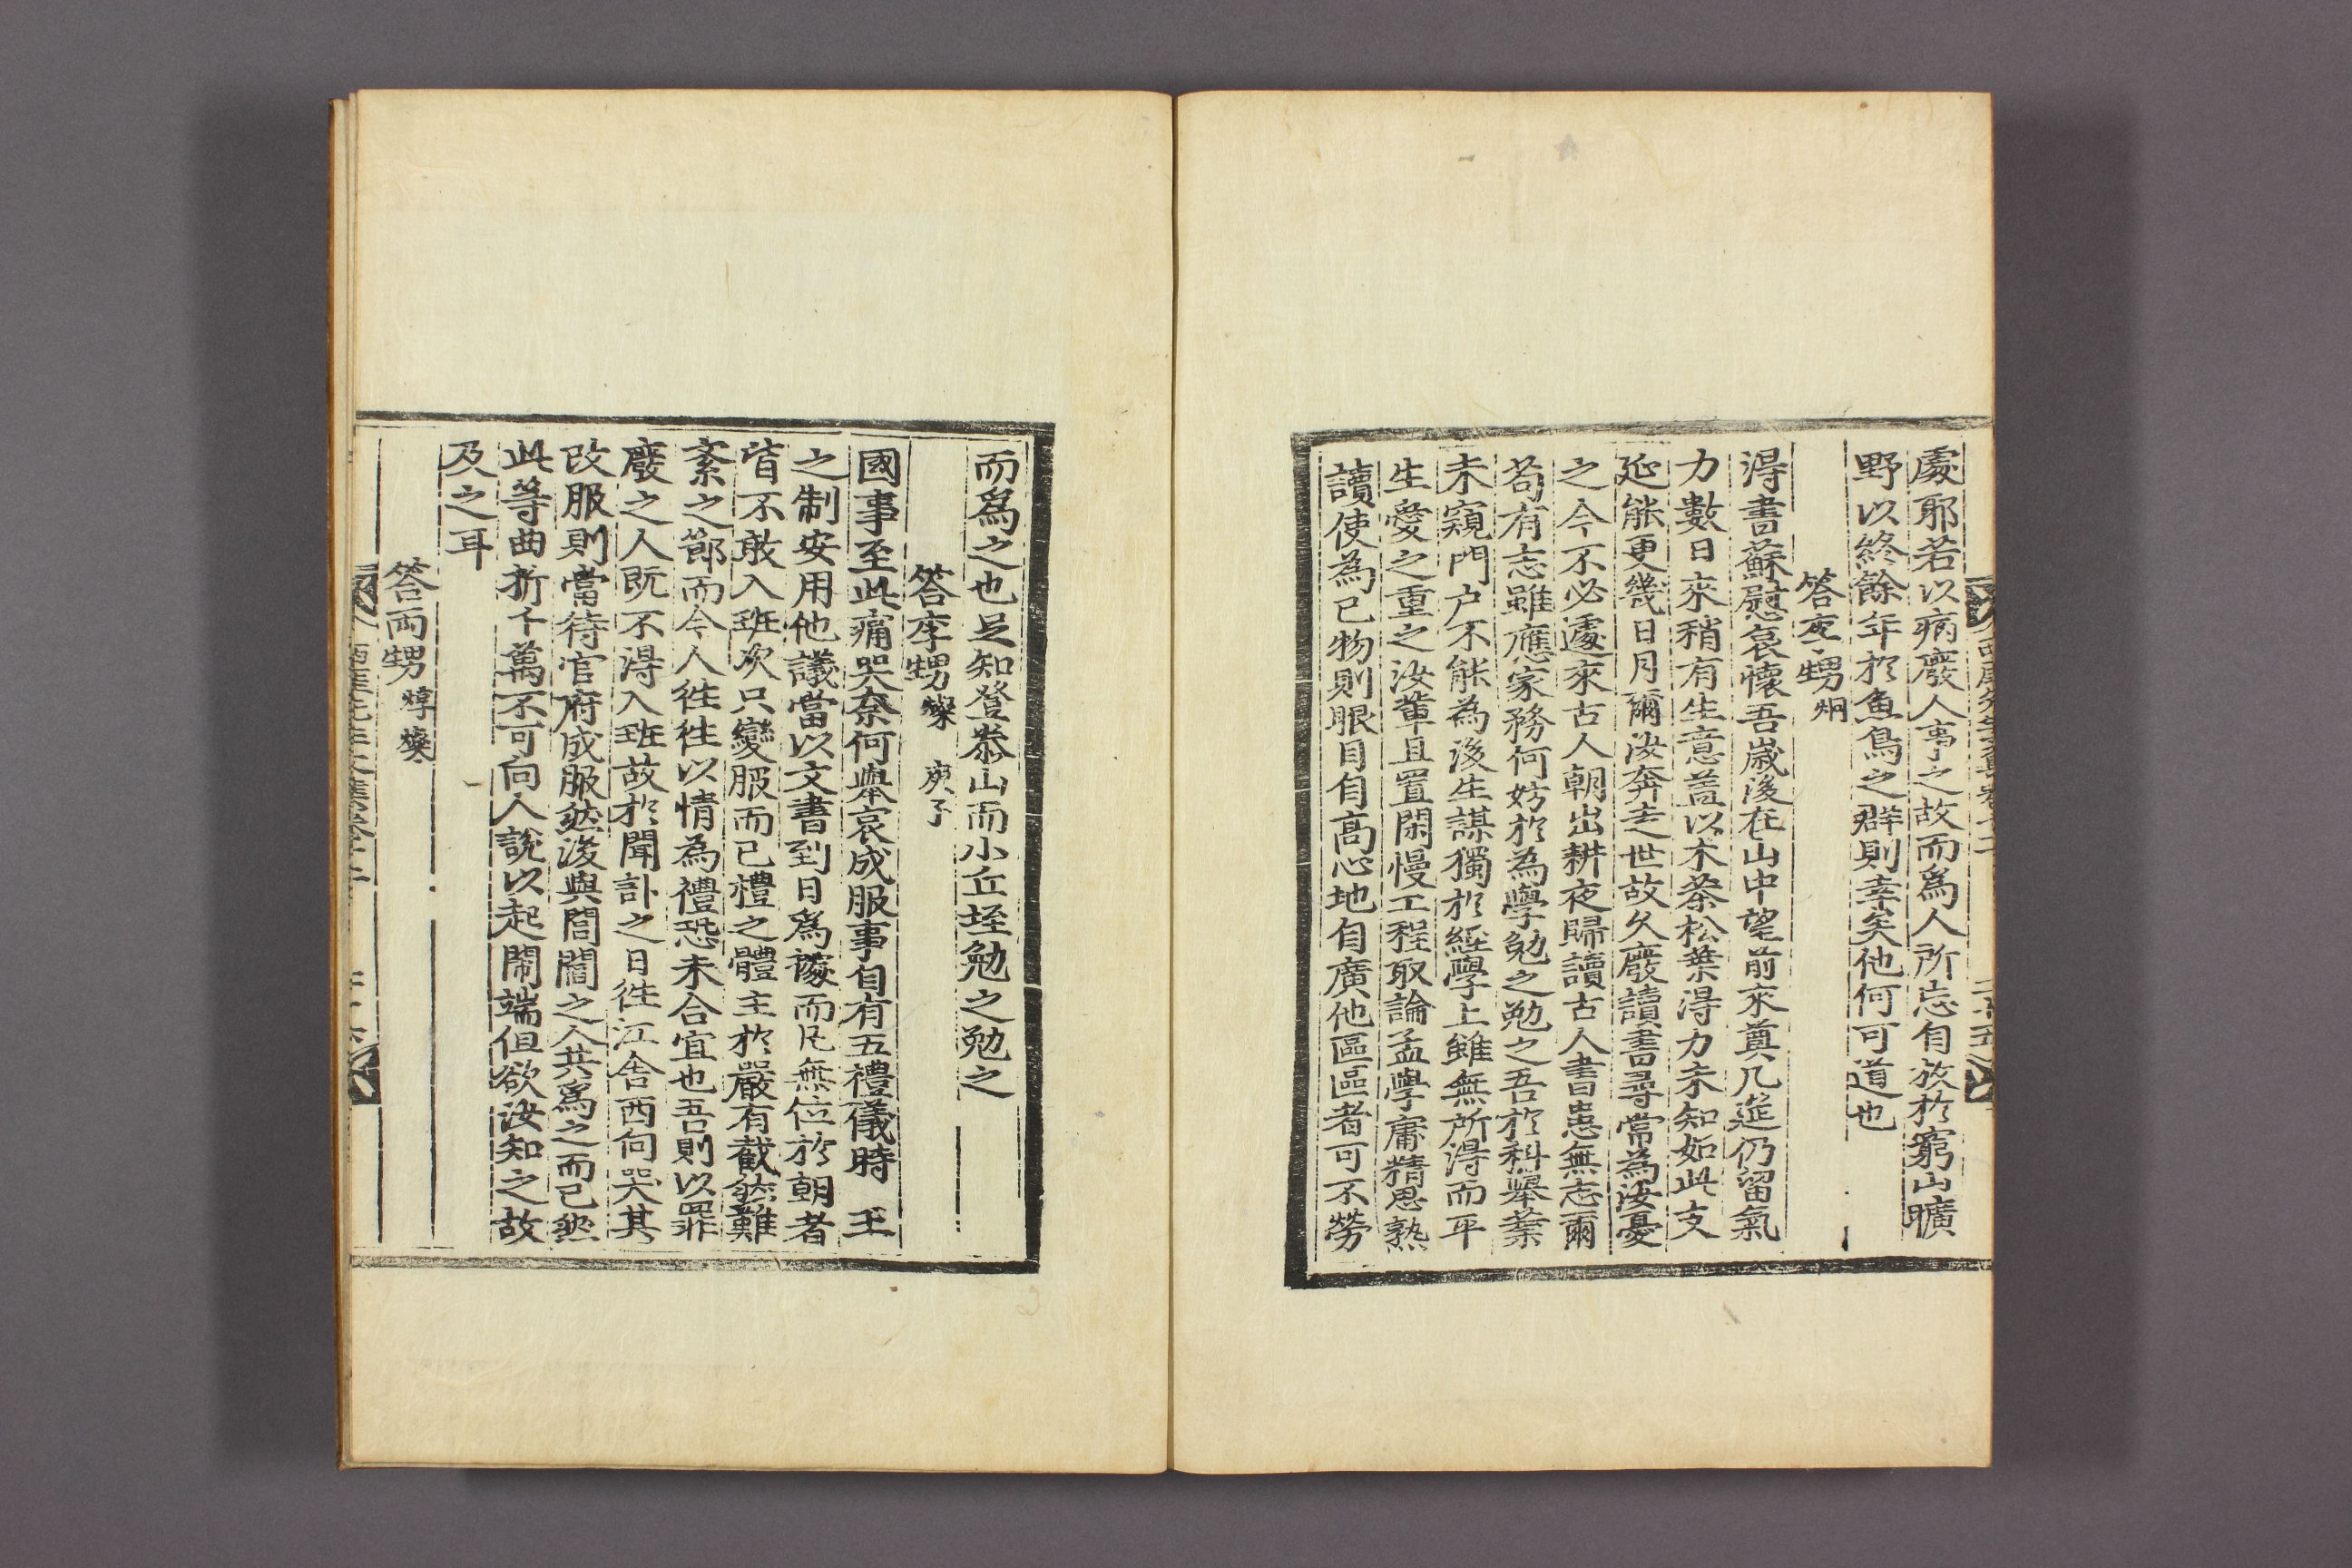 處耶若以病廢人事之故而爲人所忘自放於窮山曠
野以終餘年於魚鳥之群則幸矣他何可道也
答李甥烱
得書蘇慰哀懷吾歲後在山中望前來奠几筵仍留氣
力數日來稍有生意盖以木茶松葉得力未知如此支
延能更幾日月爾汝奔走世故久廢讀書尋常為汝憂
之今不必遽來古人朝出耕夜歸讀古人書患無志爾
苟有志雖應家務何妨於為學勉之勉之吾於科擧業
未窺門户不能為後生謀獨於經學上雖無所得而平
生愛之重之汝輩且置閑慢工程取論孟學庸精思熟
讀使為己物則眼目自高心地自廣他區區者可不勞
而爲之也足知登泰山而小丘垤勉之勉之
答李甥燦 庚子
國事至此痛哭奈何擧哀成服事自有五禮儀時 王
之制安用他議當以文書到日爲據而凡無位於朝者
皆不敢入班次只變服而已禮之體主於嚴有截然難
紊之節而今人徃徃以情為禮恐未合宜也吾則以罪
廢之人既不得入班故於聞訃之日徃江舎西向哭其
改服則當待官府成服然後與閭閻之人共爲之而已然
此等曲折千萬不可向人說以起鬧端但欲汝知之故
及之耳
答兩甥焞燦